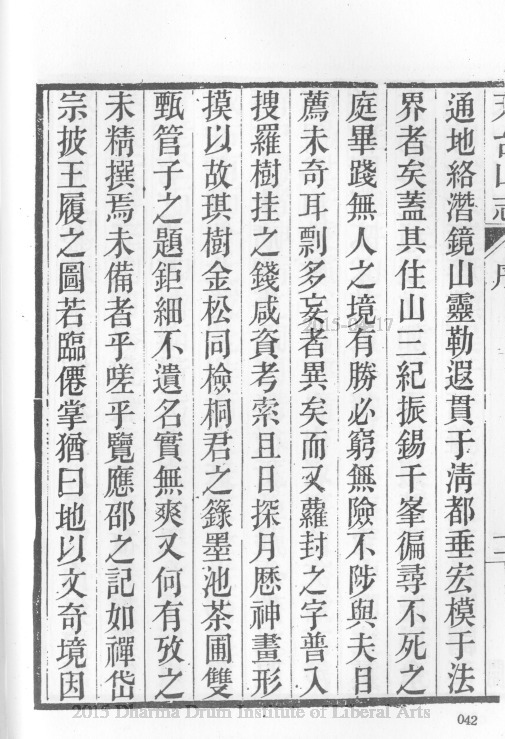 天台山志 序 二
通地絡潛鏡山靈勒遐貫于淸都垂宏模于法
界者矣蓋其住山三紀振錫千峯徧尋不死之
庭畢踐無人之境有勝必窮無險不陟與夫目
薦未奇耳剽多妄者異矣而又蘿封之字普入
搜羅樹挂之錢咸資考索且日探月厯神畫形
摸以故琪樹金松同檢桐君之籙墨池茶圃雙
甄管子之題鉅細不遺名實無爽又何有攷之
未精撰焉未備者乎嗟乎覽應邵之記如禪岱
宗披王履之圖若臨僊掌猶曰地以文奇境因
2015-04-17
2015 Dharma Drum Institute of Liberal Arts
042